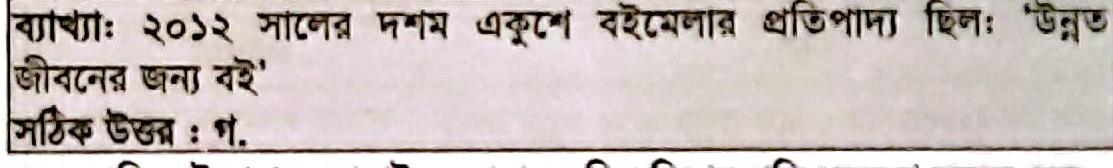 ব্যাখ্যাঃ ২০১২ সালের দশম একুশে বইমেলার প্রতিপাদ্য ছিলঃ 'উন্নত
জীবনের জন্য বই'
সঠিক উত্তর : গ.